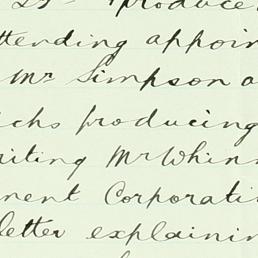 produce
ttending appoin
Mr Simpson a
chs producing
riting Mr Whinn
nent Corporati
letter explainin